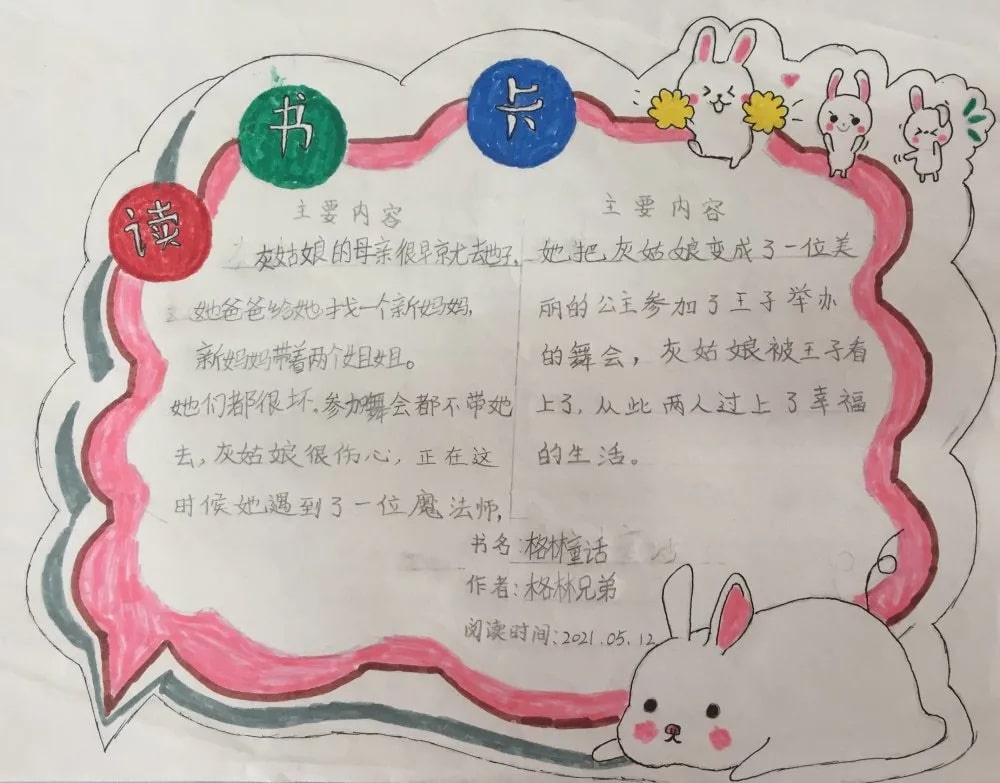 读书卡
主要内容
灰姑娘的母亲很早就去
她爸爸给她找一个新妈妈,
新妈妈带着两个姐姐。
她们都很坏。参加舞会都不带她
去,灰姑娘很伤心,正在这
时候她遇到了一位魔法师,
主要内容
她把灰姑娘变成了一位美
丽的公主参加了王子举办
的舞会,灰姑娘被王子看
上了,从此两人过上了幸福
的生活。
书名:格林童话
作者:格林兄弟
阅读时间:2021.05.12